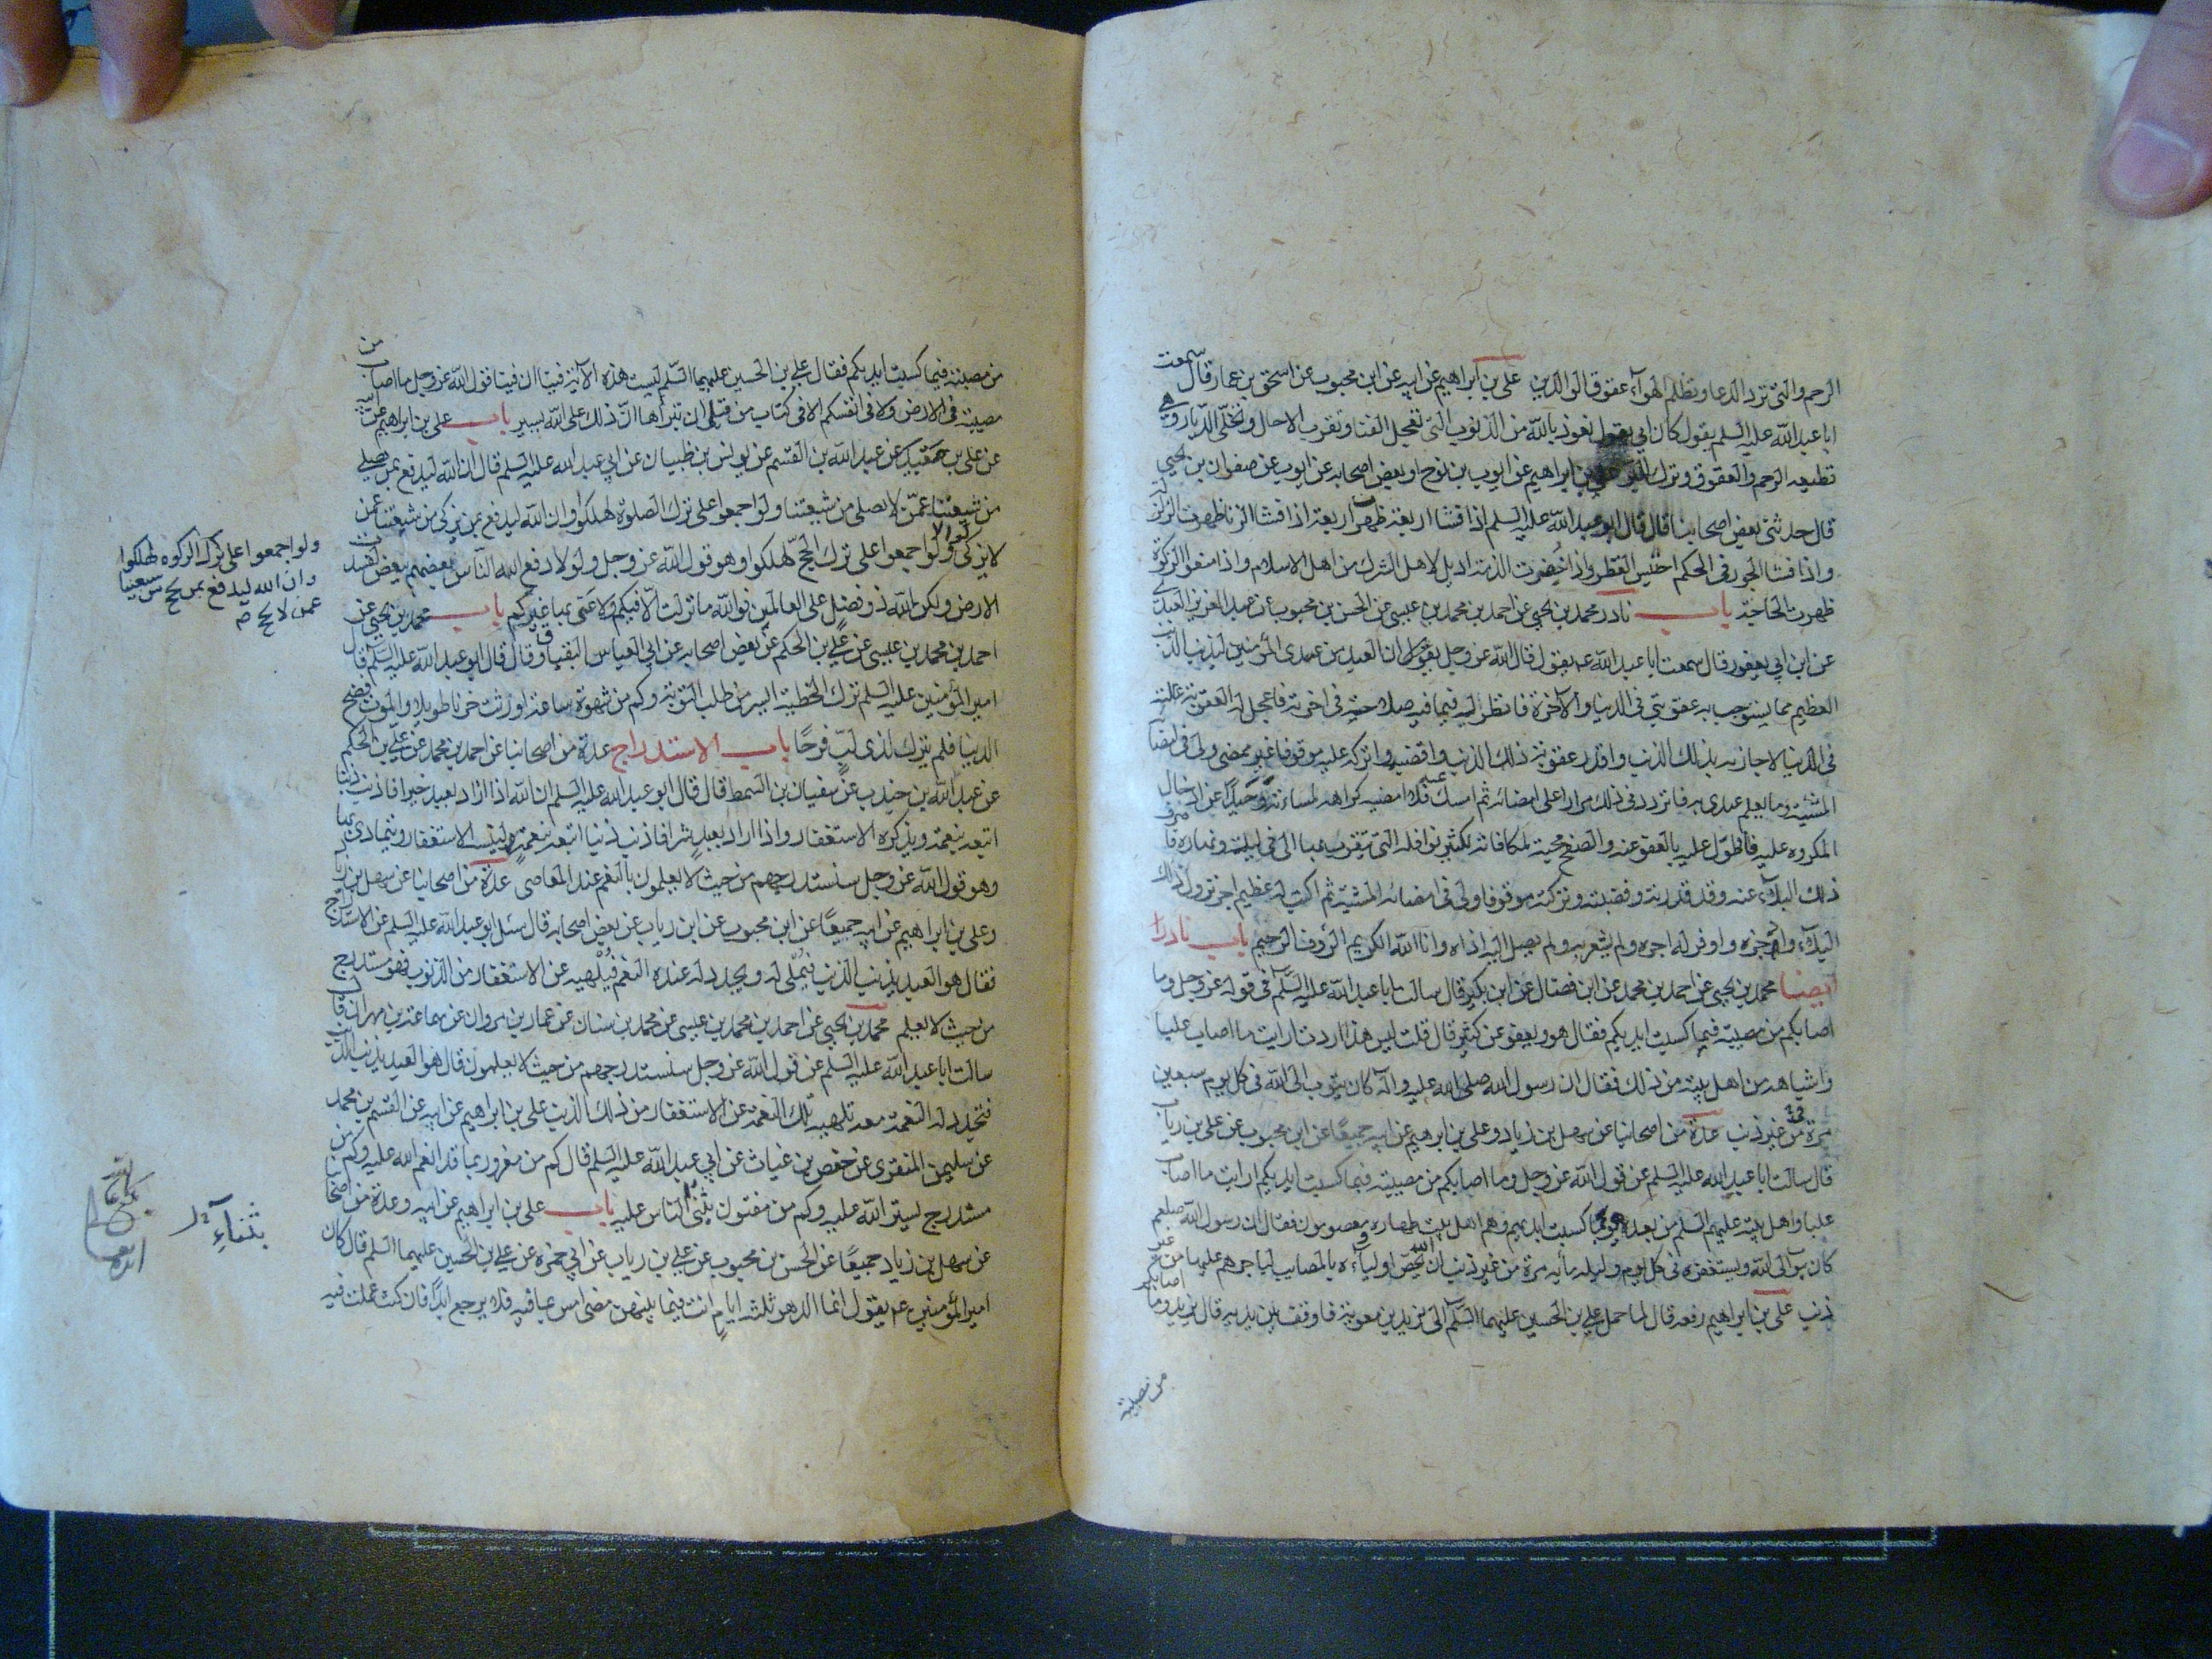 الرحم والتى ترد الدعا و تظلم الهوآء عقوق الوالدين علي بن ابراهيم عن ابيه عن ابن محبوب عن اسحق بن عمار قال سمعت
ابا عبد الله عليه السلم يقول كان ابي يقول نعوذ بالله من الذنوب التى تعجل الفنا وتقرب الاجال وتخلى الديار وهى
قطيعه الرحم والعقوق وترك البر علي بن ابراهيم عن ايوب بن نوح او بعض اصحابه عن ايوب عن صفوان بن يحيى
قال حدثنى بعض اصحابنا قال قال ابو عبد الله عليه السلم اذا فشا اربعة ظهرت اربعة اذا فشا الزنا ظهرت الزلزلة
واذا فشا الجور فى الحكم احتبس القطر واذا خفرت الذمة اديل لاهل الشرك من اهل الاسلام واذا منعوا الزكوة
ظهرت الحاجة باب نادر محمد بن يحيى عن احمد بن محمد بن عيسى عن الحسن بن محبوب عن عبد العزيز العبدى
عن ابن ابي يعفور قال سمعت ابا عبد الله عم يقول قال الله عز وجل يقول ان العبد من عبيدى المؤمنين ليذنب الذنب
العظيم مما يستوجب به عقوبتي فى الدنيا والآخرة فانظر له فيما فيه صلاحه فى اخرته فاعجل له العقوبة عليه
فى الدنيا لاجازيه بذلك الذنب واقدر عقوبة ذلك الذنب واقضيه واتركه عليه موقوفا غير ممضى ولى فى امضائه
المشية وما يعلم عبدى به فاتردد فى ذلك مرارا على امضائه ثم امسك عنه فلا امضيه كراهة لمساءته وحيدا عن ادخال
المكروه عليه فاتطول عليه بالعفو عنه والصفح محبة لمكافاته لكثير نوافله التى يتقرب بها الى فى ليله ونهاره فاصرف
ذلك البلآء عنه وقد قدرته وقضيته وتركته موقوفا ولى فى امضائه المشية ثم اكتب له عظيم اجر نزول ذلك
البلآء وادخره واوفر له اجره ولم يشعر به ولم يصل اليه اذاه وانا الله الكريم الرؤف الرحيم باب نادر
ايضا محمد بن يحيى عن احمد بن محمد عن ابن فضال عن ابن بكير قال سالت ابا عبد الله عليه السلم فى قوله عز وجل وما
اصابكم من مصيبة فيما كسبت ايديكم فقال هو ويعفو عن كثير قال قلت ليس هذا اردت ارايت ما اصاب عليا
واشباهه من اهل بيته من ذلك فقال ان رسول الله صلى الله عليه واله كان يتوب الى الله فى كل يوم سبعين
مرة من غير ذنب عدة من اصحابنا عن سهل بن زياد وعلي بن ابراهيم عن ابيه جميعًا عن ابن محبوب عن علي بن رياب
قال سالت ابا عبد الله عليه السلم عن قول الله عز وجل وما اصابكم من مصيبة فيما كسبت ايديكم ارايت ما اصاب
عليا واهل بيته عليهم السلم من بعده هو بما كسبت ايديهم وهم اهل بيت طهارة معصومون فقال ان رسول الله صلعم
كان يتوب الى الله ويستغفره فى كل يوم وليلة مأية مرة من غير ذنب ان الله يخص اولياءه بالمصايب لياجرهم عليها من غير
ذنب علي بن ابراهيم رفعه قال لما حمل علي بن الحسين عليهما السلم الى يزيد بن معوية فاوقف بين يديه قال يزيد وما اصابكم
من مصيبة
من مصيبة فيما كسبت ايديكم فقال علي بن الحسين عليهما السلم ليست هذه الآية فينا ان فينا قول الله عز وجل ما اصاب من
مصيبة فى الارض ولا فى انفسكم الا فى كتاب من قبل ان نبرأها ان ذلك على الله يسير باب علي بن ابراهيم عن ابيه
عن علي بن معبد عن عبد الله بن القسم عن يونس بن ظبيان عن ابي عبد الله عليه السلم قال ان الله ليدفع بمن يصلي
من شيعتنا عمن لا يصلى من شيعتنا ولو اجمعوا على ترك الصلوة لهلكوا وان الله ليدفع بمن يزكى من شيعتنا عمن
لا يزكى ولو اجمعوا على ترك الحج لهلكوا وهو قول الله عز وجل ولولا دفع الله الناس بعضهم ببعض لفسدت
الارض ولكن الله ذو فضل على العالمين فوالله ما نزلت الا فيكم ولا عنى بها غيركم باب محمد بن يحيى عن
احمد بن محمد بن عيسى عن علي بن الحكم عن بعض اصحابه عن ابي العباس البقباق قال قال ابو عبد الله عليه السلم قال
امير المؤمنين عليه السلم ترك الخطيئة ايسر من طلب التوبة وكم من شهوة ساعة اورثت حزنا طويلا والموت فضح
الدنيا فلم يترك لذى لب فرحًا باب الاستدراج عدة من اصحابنا عن احمد بن محمد عن علي بن الحكم
عن عبد الله بن جندب عن سفيان بن السمط قال قال ابو عبد الله عليه السلم ان الله اذا اراد بعبد خيرا فاذنب ذنبا
اتبعه بنقمة ويذكره الاستغفار واذا اراد بعبد شرا فاذنب ذنبا اتبعه بنعمة لينسيه الاستغفار ويتمادى بها
وهو قول الله عز وجل سنستدرجهم من حيث لا يعلمون بالنعم عند المعاصى عدة من اصحابنا عن سهل بن زياد
وعلي بن ابراهيم عن ابيه جميعًا عن ابن محبوب عن ابن رياب عن بعض اصحابه قال سئل ابو عبد الله عليه السلم عن الاستدراج
فقال هو العبد يذنب الذنب فيُملى له ويجدد له عنده النعم فيُلهيه عن الاستغفار من الذنوب فهو مستدرج
من حيث لا يعلم محمد بن يحيى عن احمد بن محمد بن عيسى عن محمد بن سنان عن عمار بن مروان عن سماعة بن مهران قال
سالت ابا عبد الله عليه السلم عن قول الله عز وجل سنستدرجهم من حيث لا يعلمون قال هو العبد يذنب الذنب
فتجدد له النعمة معه تلهيه تلك النعمة عن الاستغفار من ذلك الذنب علي بن ابراهيم عن ابيه عن القسم بن محمد
عن سليمن المنقرى عن حفص بن غياث عن ابي عبد الله عليه السلم قال كم من مغرور بما قد انعم الله عليه وكم من
مستدرج بستر الله عليه وكم من مفتون بثنآء الناس عليه باب علي بن ابراهيم عن ابيه وعدة من اصحابنا
عن سهل بن زياد جميعًا عن الحسن بن محبوب عن علي بن رياب عن ابي حمزه عن علي بن الحسين عليهما السلم قال كان
امير المؤمنين عم يقول انما الدهر ثلثه ايام انت فيما بينهن مضى امس بما فيه فلا يرجع ابدًا فان كنت عملت فيه
ولو اجمعوا على ترك الزكوه لهلكوا
وان الله ليدفع بمن يحج من شيعتنا
عمن لا يحج
بثنآءِ